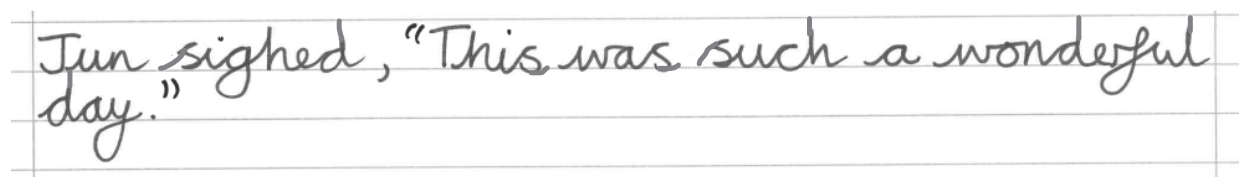 Jun sighed, “This was such a wonderful
day.”